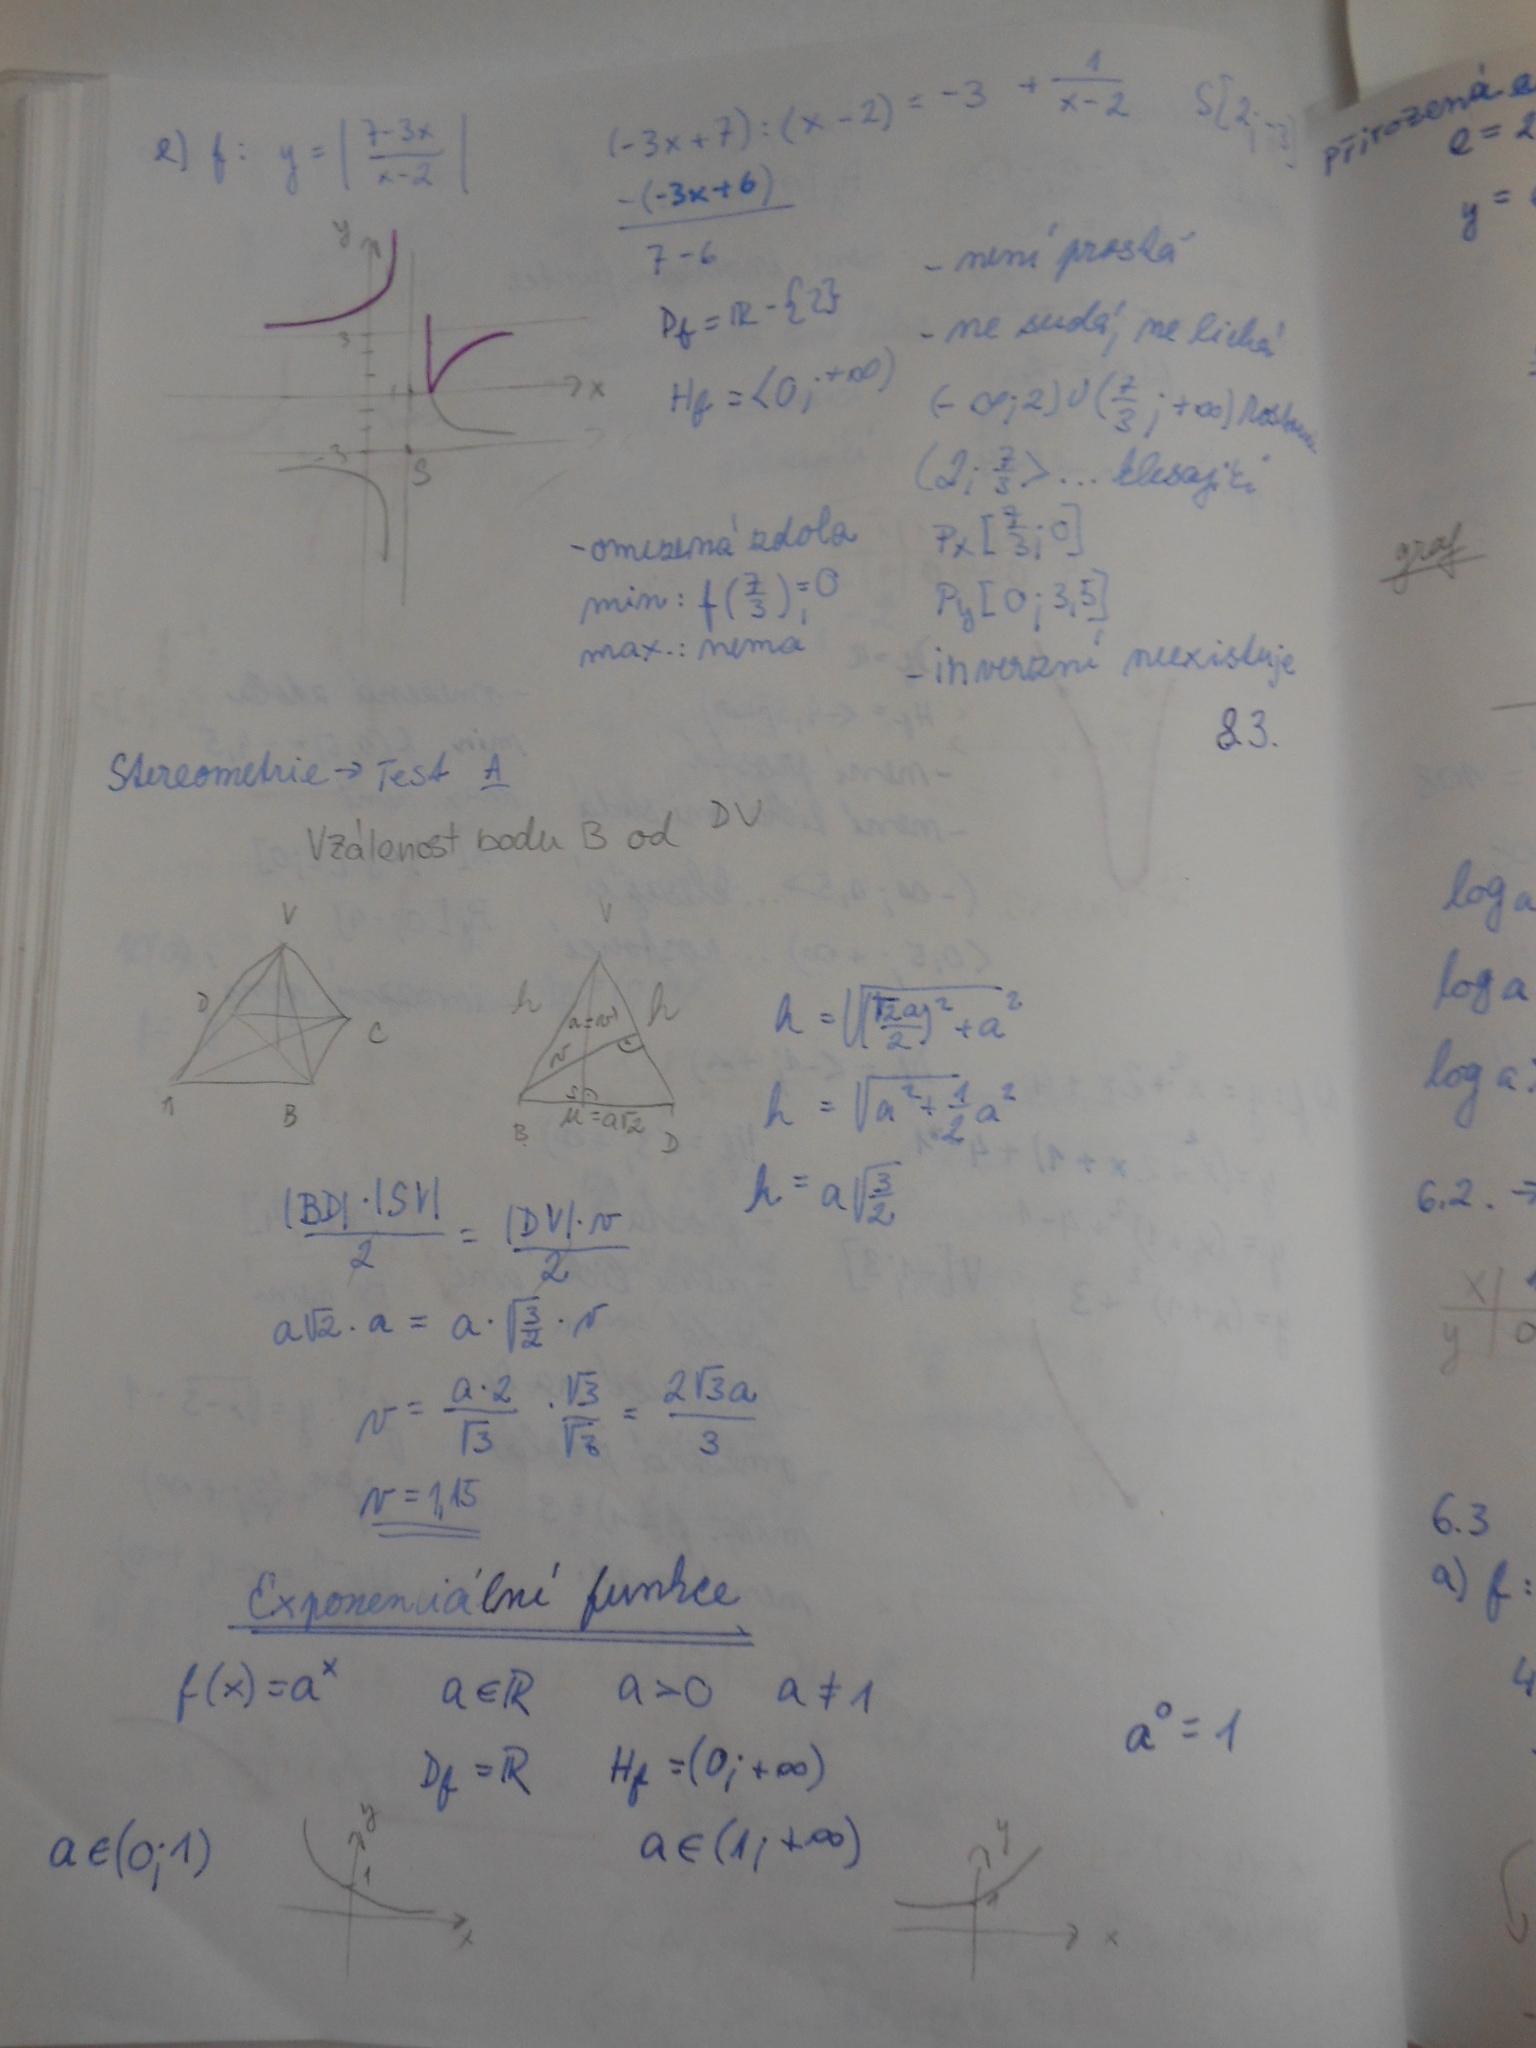 e) f: y = | (7-3x)/(x-2) |
(-3x+7) : (x-2) = -3 + 1/(x-2) S[2; -3]
-(-3x+6)
7-6
Df = ℝ - {2}
Hf = <0; +∞)
- není prostá
- ne sudá, ne lichá
(-∞; 2) ∪ (7/3; +∞)
(2; 7/3> ... klesající
Px [7/3; 0]
Py [0; 3,5]
- inverzní neexistuje
- omezená zdola
min: f(7/3) = 0
max.: nemá
y
3
1
x
-3
S
8.3.
Stereometrie → Test A
Vzálenost bodu B od DV
V
D
C
A
B
V
h
h
a=v
v
S
u = a√2
B
D
h = √((√2a/2)² + a²)
h = √(a² + 1/2 a²)
h = a√(3/2)
|BD|·|SV|/2 = |DV|·v/2
a√2 · a = a · √(3/2) · v
v = a·2/√3 · √3/√3 = 2√3a/3
v = 1,15
Exponenciální funkce
f(x) = aˣ a∈ℝ a>0 a≠1
a⁰ = 1
Df = ℝ Hf = (0; +∞)
a∈(0;1)
y
1
x
a∈(1; +∞)
y
1
x
přirozená e
e = 2
y =
graf
log a
log a
log a
6.2. →
x
y
6.3
a) f:
4